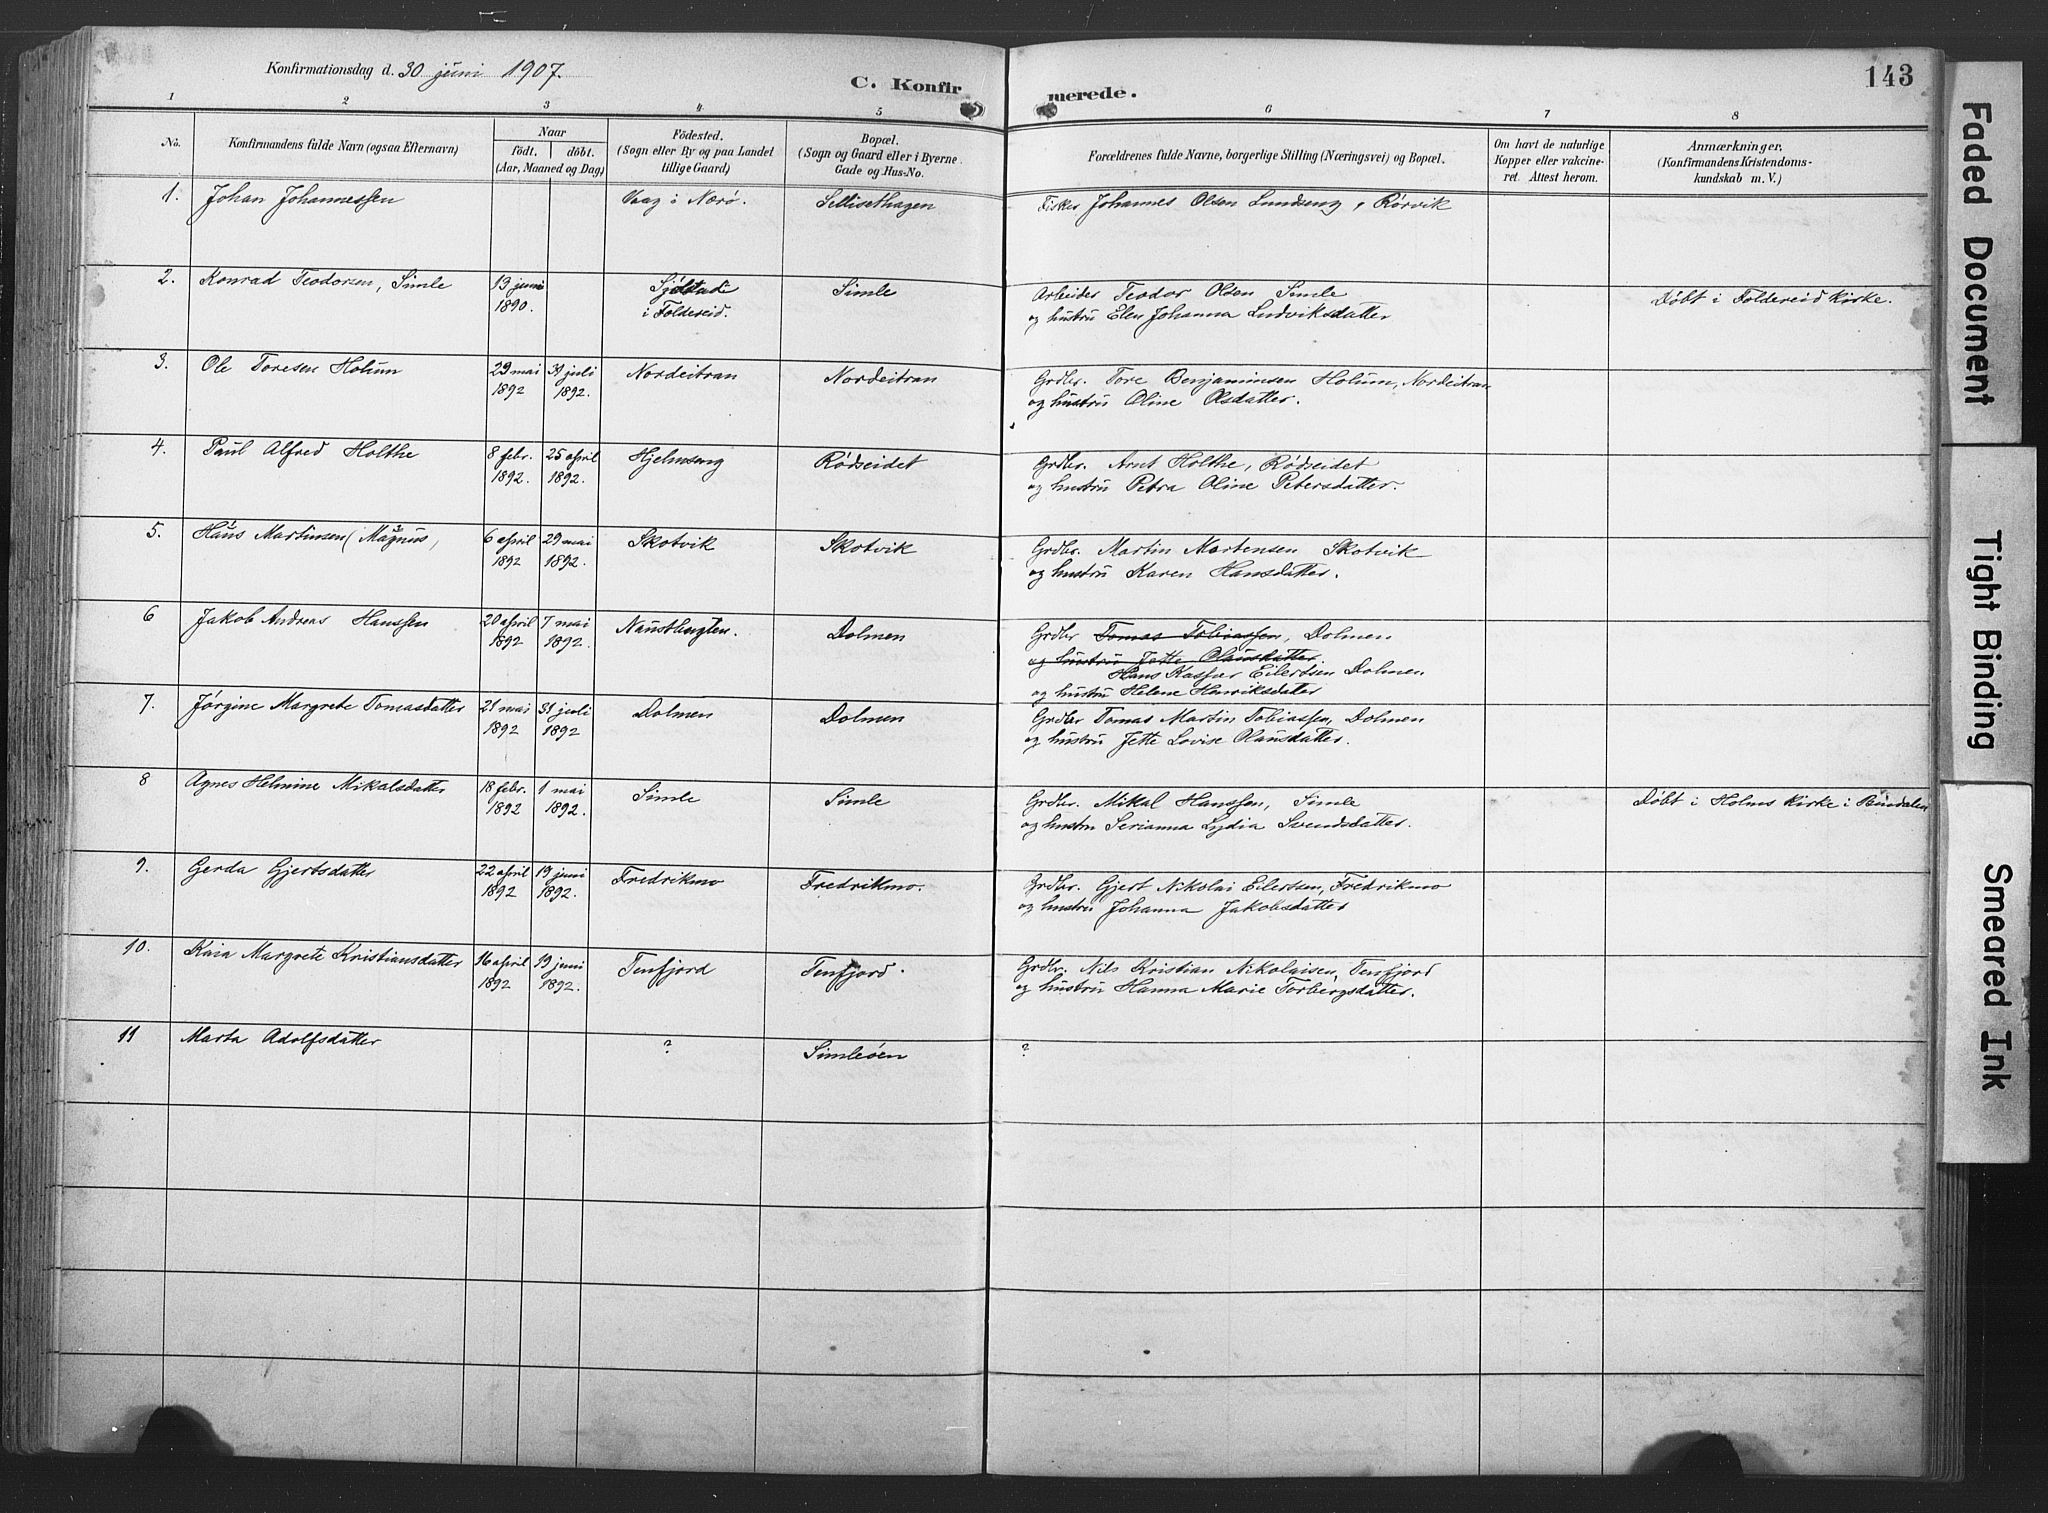 Konfirmationsdag d. 30 juni 1907.
C. Konfirmerede.
143
1 2 3 4 5 6 7 8
No.
Konfirmandens fulde Navn (ogsaa Efternavn)
Naar
födt. döbt.
(Aar, Maaned og Dag)
Födested.
(Sogn eller By og paa Landet
tillige Gaard)
Bopæl.
(Sogn og Gaard eller i Byerne
Gade og Hus-No.
Forældrenes fulde Navne, borgerlige Stilling (Næringsvei) og Bopæl.
Om havt de naturlige
Kopper eller vakcine-
ret. Attest herom.
Anmærkninger.
(Konfirmandens Kristendoms-
kundskab m. V.)
1. Johan Johannessen Vaag i Nærø. Sellisethagen Fisker Johannes Olsen Lundseng, Rörvik
2. Konrad Teodorsen, Simle 13 juni 1890. i Foldereid. Simle Arbeider Teodor Olsen Simle
og hustru Elen Johanna Ludviksdatter
Döbt i Foldereid kirke.
3. Ole Toresen Holum 29 mai 1892 31 juli 1892. Nordeitran Nordeitran Grdbr. Tore Benjaminsen Holum, Nordeitran
og hustru Oline Olsdatter.
4. Paul Alfred Holthe 8 febr. 1892. 25 april 1892. Hjelmseng Rödseidet Grdbr. Arnt Holthe, Rödseidet
og hustru Petra Oline Petersdatter.
5. Hans Martinsen (Magnus) 6 april 1892 29 mai 1892. Skotvik Skotvik Grdbr. Martin Mortensen Skotvik
og hustru Karen Hansdatter.
6 Jakob Andreas Hanssen 20 april 1892 7 mai 1892. Naustbugten. Dolmen Grdbr Tomas Tobiassen, Dolmen
og hustru Jette Olausdatter
Hans Kasper Eilertsen Dolmen
og hustru Helene Henriksdatter
7. Jörgine Margrete Tomasdatter 21 mai 1892 31 juli 1892 Dolmen Dolmen Grdbr Tomas Martin Tobiassen, Dolmen
og hustru Jette Lovise Olausdatter.
8 Agnes Helmine Mikalsdatter 18 febr. 1892 1 mai 1892. Simle Simle Grdbr. Mikal Hanssen, Simle
og hustru Serianna Lydia Svendsdatter.
Döbt i Holms kirke i Bindalen
9. Gerda Gjertsdatter 22 april 1892 19 juni 1892. Fredrikmo Fredrikmo. Grdbr. Gjert Nikolai Eilertsen, Fredrikmo
og hustru Johanna Jakobsdatter
10. Kaia Margrete Kristiansdatter 16 april 1892 19 juni 1892. Tenfjord Tenfjord. Grdbr. Nils Kristian Nikolaisen, Tenfjord
og hustru Hanna Marie Torbergsdatter.
11 Marta Adolfsdatter ? Simleöen ?
Faded Document
Tight Binding
Smeared Ink